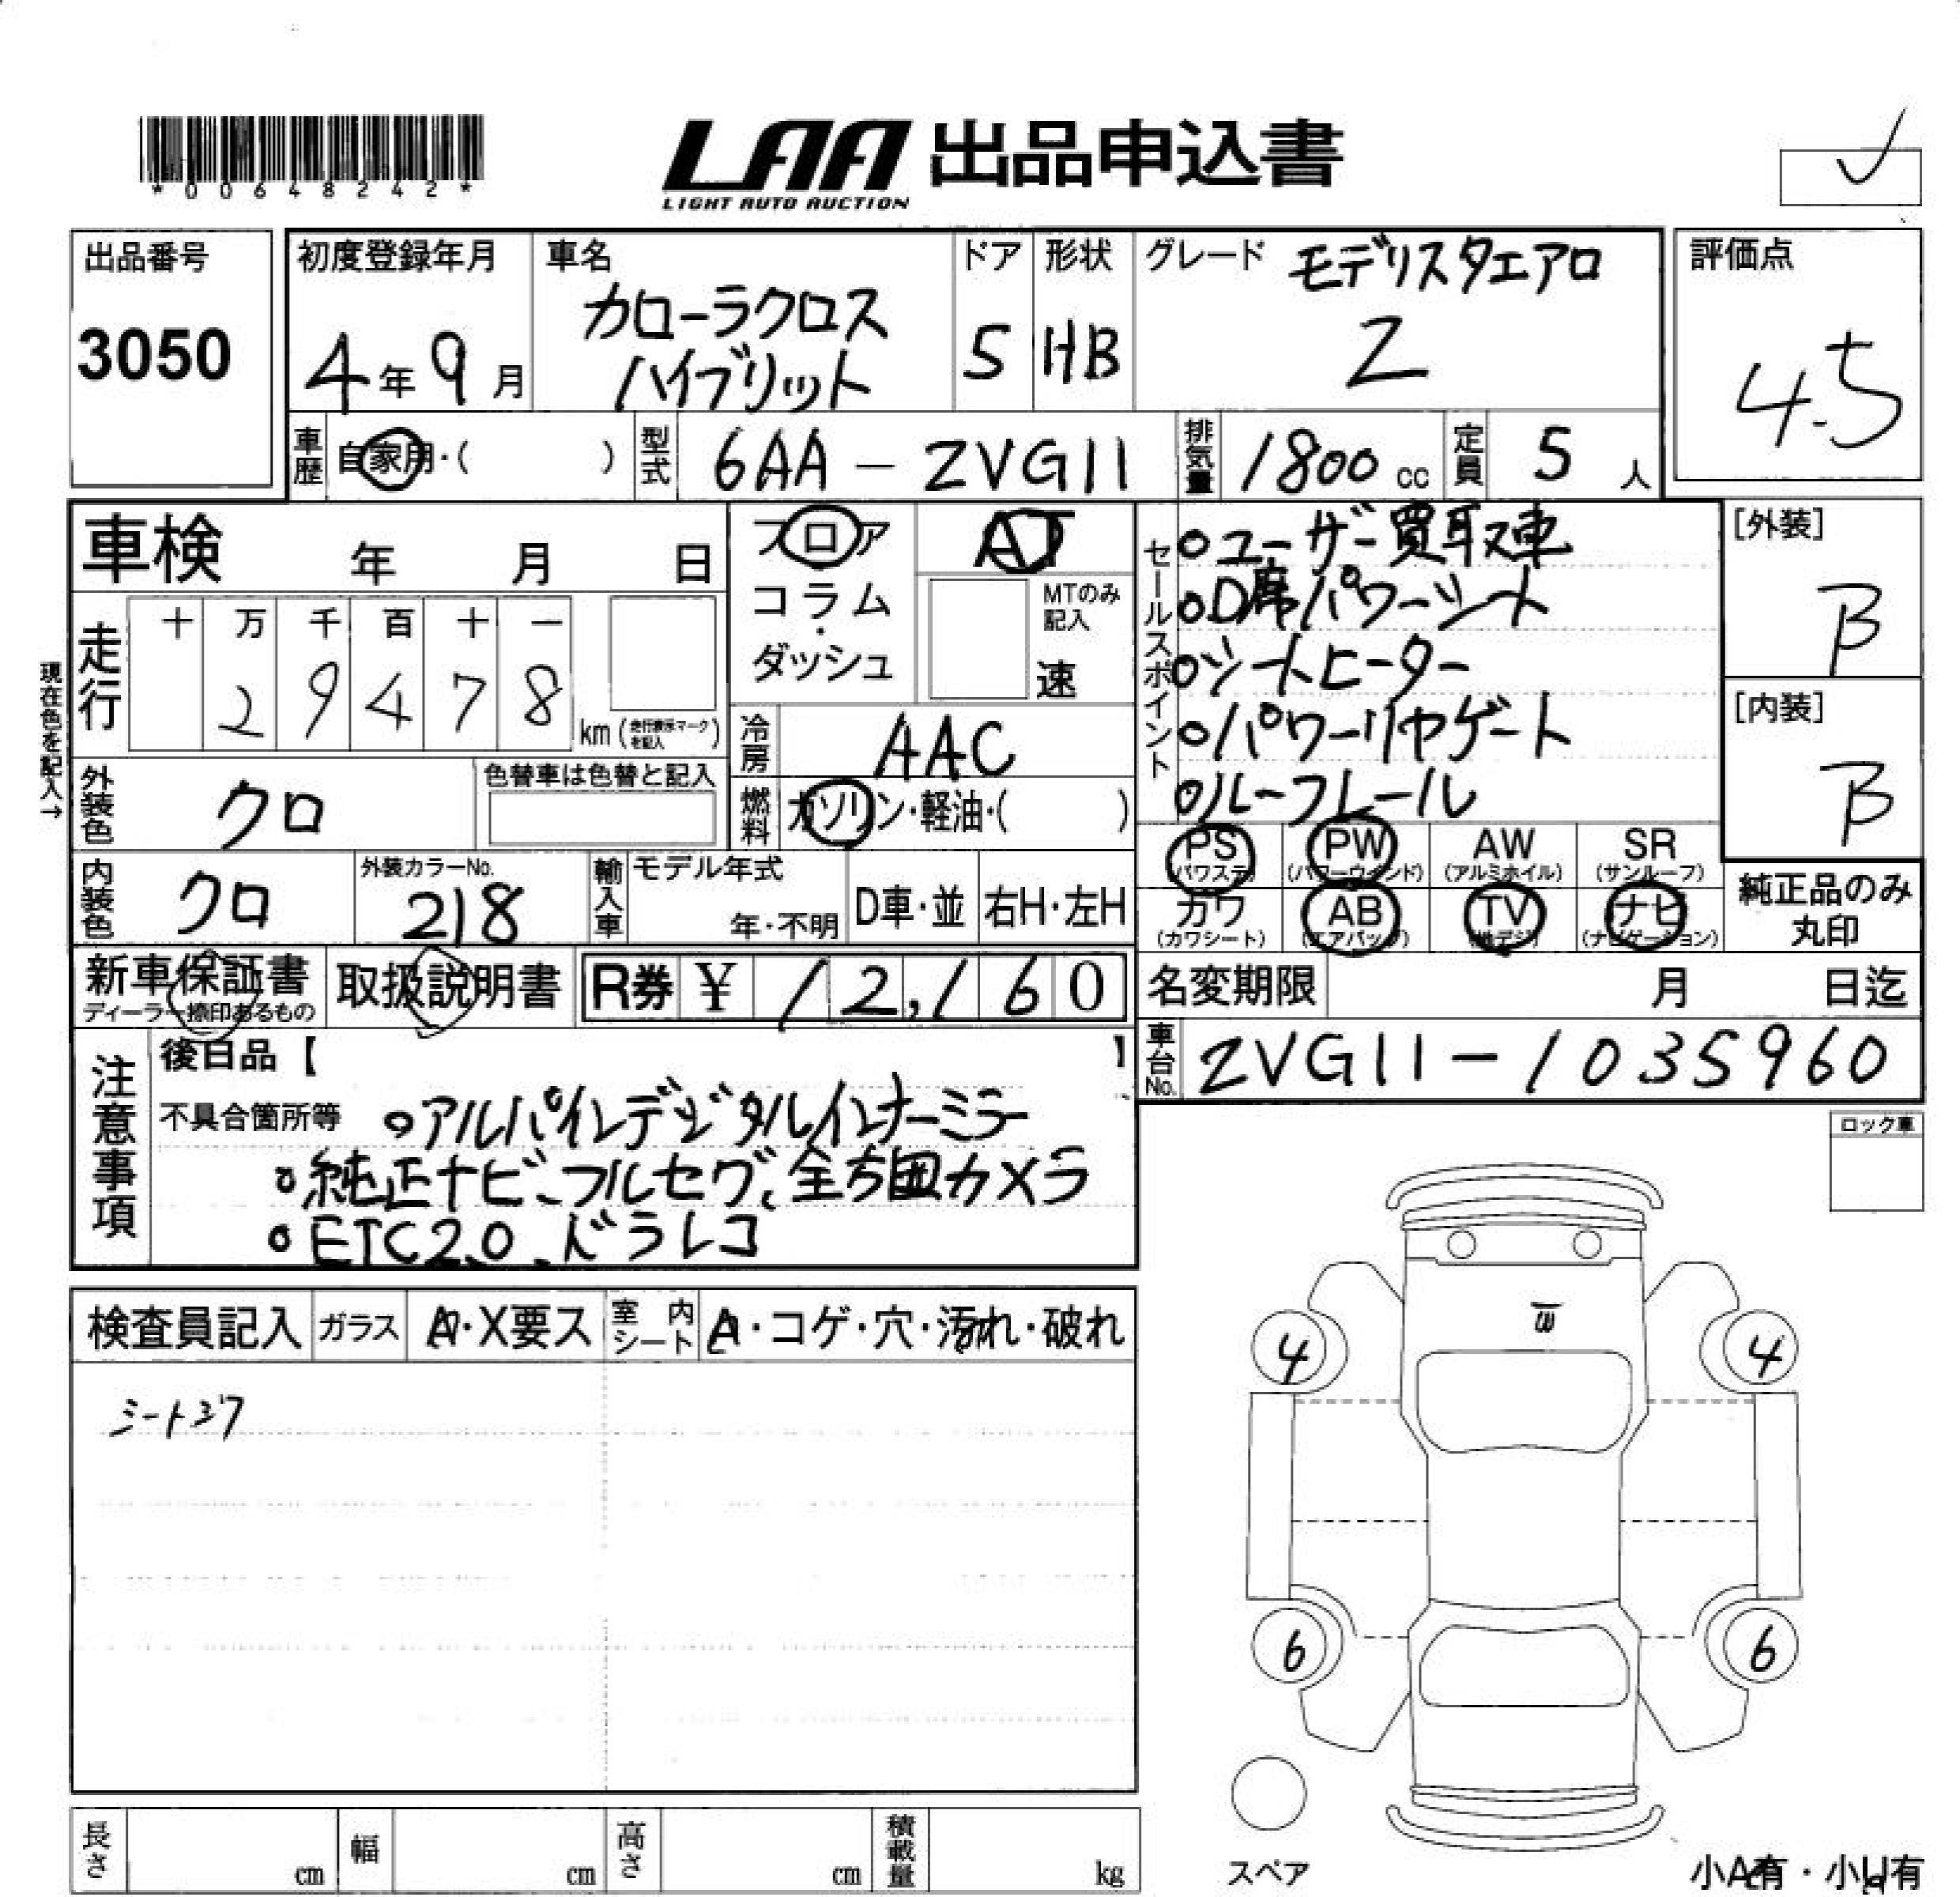 *00648242*
LAA 出品申込書
LIGHT AUTO AUCTION
出品番号
3050
初度登録年月
4年9月
車名
カローラクロス
ハイブリット
ドア
5
形状
HB
グレード モデリスタエアロ
Z
評価点
4.5
車歴 自家用・( )
型式 6AA-ZVG11
排気量 1800 cc
定員 5 人
車検 年 月 日
フロア
コラム
・
ダッシュ
AT
MTのみ
記入
速
セールスポイント
○ユーザー買取車
○D席パワーシート
○シートヒーター
○パワーリヤゲート
○ルーフレール
[外装]
B
[内装]
B
現在色を記入→
走行
十 万 千 百 十 一
2 9 4 7 8
km (走行表示マークを記入)
冷房 AAC
外装色 クロ
色替車は色替と記入
燃料 ガソリン・軽油・( )
PS
(パワステ)
PW
(パワーウインド)
AW
(アルミホイル)
SR
(サンルーフ)
内装色 クロ
外装カラーNo.
218
輸入車
モデル年式
年・不明
D車・並
右H・左H
カワ
(カワシート)
AB
(エアバッグ)
TV
(地デジ)
ナビ
(ナビゲーション)
純正品のみ
丸印
新車保証書
ディーラー捺印あるもの
取扱説明書
R券 ¥ 12,160
名変期限 月 日迄
車台No. ZVG11-1035960
注意事項
後日品【 】
不具合箇所等 ○アルパインデジタルインナーミラー
○純正ナビ、フルセグ、全方囲カメラ
○ETC2.0、ドラレコ
ロック車
検査員記入
ガラス
A・X要ス
室内シート
A・コゲ・穴・汚れ・破れ
W
4 4
6 6
スペア
長さ cm
幅 cm
高さ cm
積載量 kg
小A有・小U有